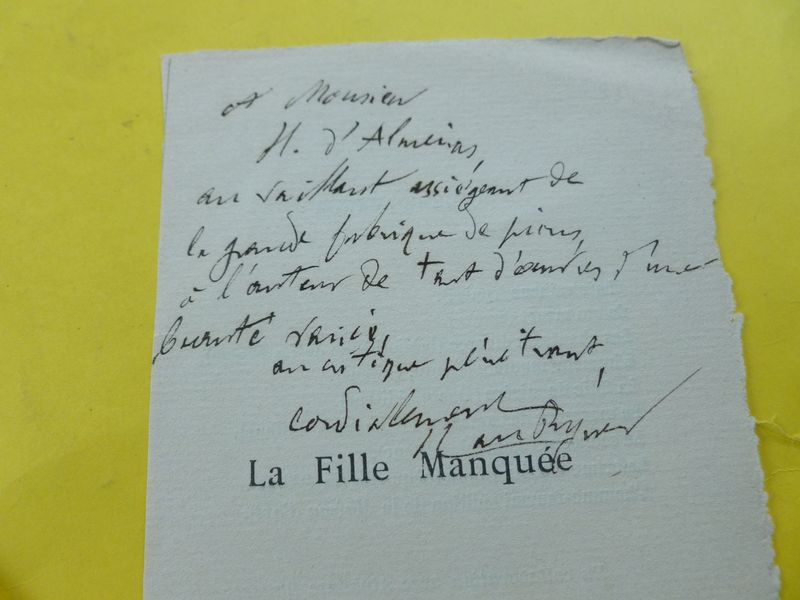 A Monsieur
H. d'Alméras,
au vaillant assiégeant de
la grande fabrique de pions,
à l'auteur de tant d'œuvres d'une
beauté variée,
au critique pénétrant,
cordialement
Han Ryner
La Fille Manquée